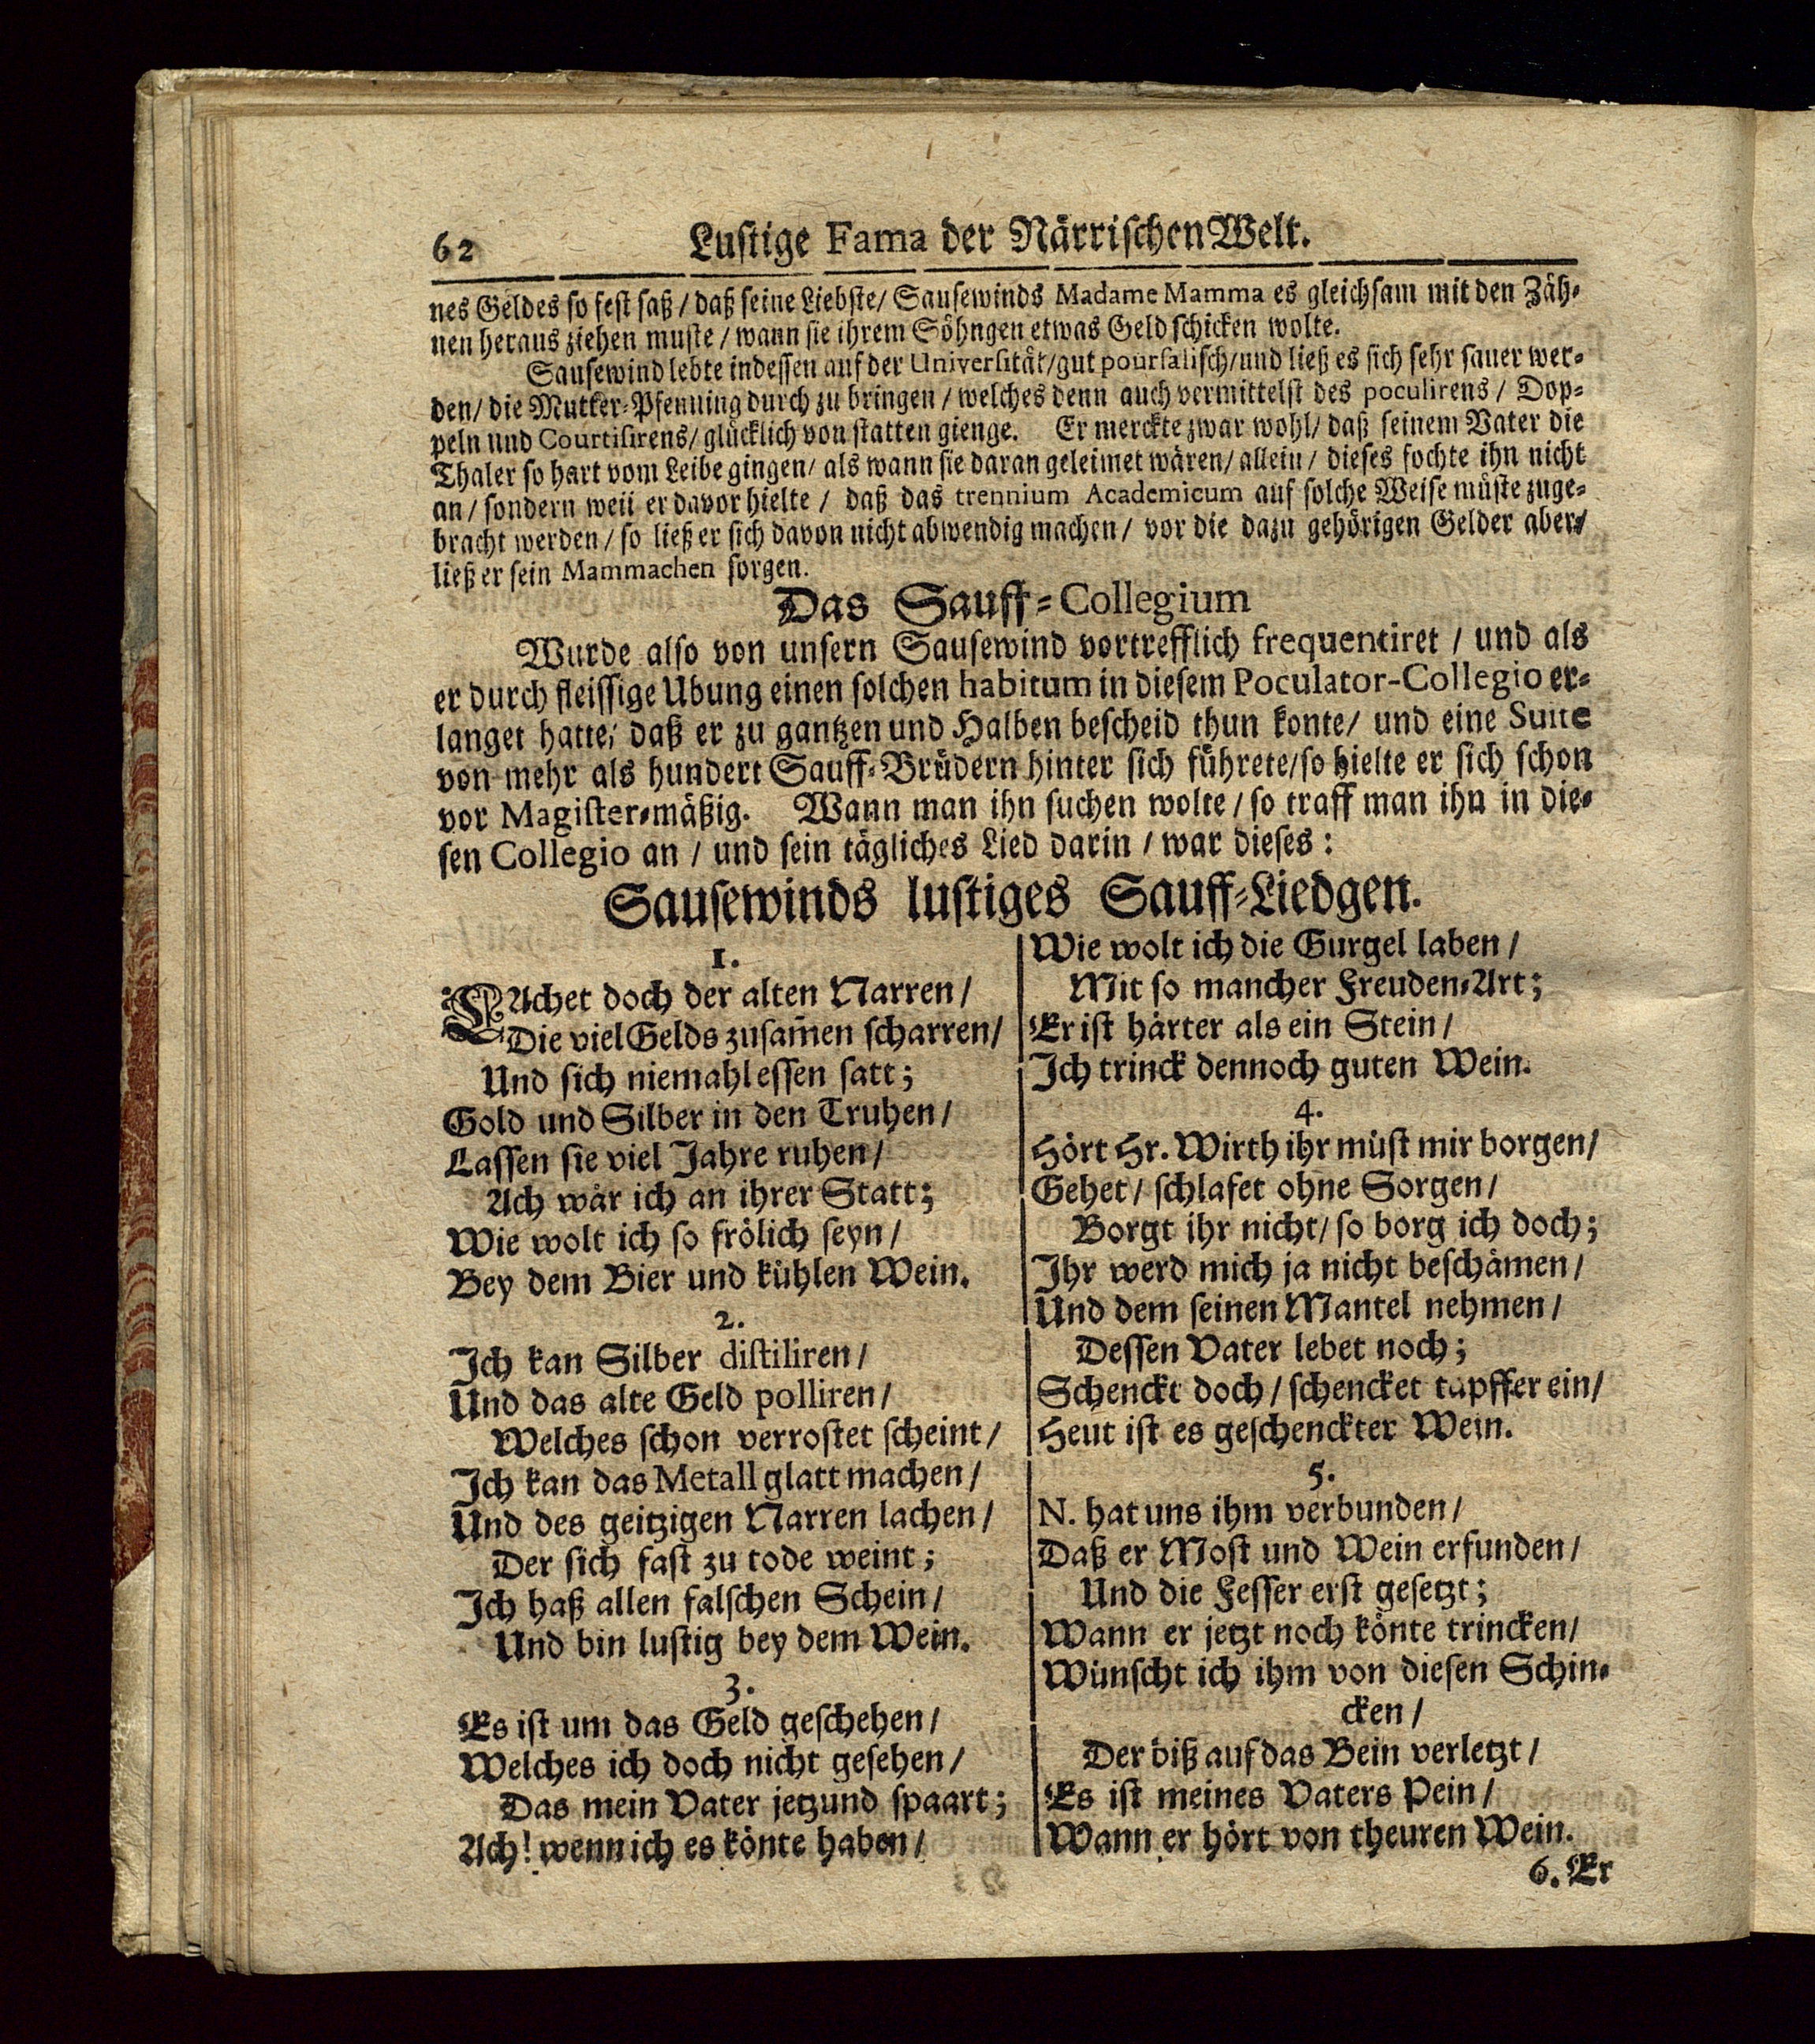 62 Lustige Fama der Närrischen Welt.
nes Geldes so fest saß / daß seine Liebste / Sausewinds Madame Mamma es gleichsam mit den Zäh-
nen heraus ziehen muste / wann sie ihrem Söhngen etwas Geld schicken wolte.
Sausewind lebte indessen auf der Universität / gut poursalisch / und ließ es sich sehr sauer wer-
den / die Mutter-Pfenning durch zu bringen / welches denn auch vermittelst des poculirens / Dop-
peln und Courtisirens / glücklich von statten gienge. Er merckte zwar wohl / daß seinem Vater die
Thaler so hart vom Leibe gingen / als wann sie daran geleimet wären / allein / dieses fochte ihn nicht
an / sondern weil er davor hielte / daß das trennium Academicum auf solche Weise müste zuge-
bracht werden / so ließ er sich davon nicht abwendig machen / vor die dazu gehörigen Gelder aber /
ließ er sein Mammachen sorgen.
Das Sauff-Collegium
Wurde also von unsern Sausewind vortrefflich frequentiret / und als
er durch fleissige Ubung einen solchen habitum in diesem Poculator-Collegio er-
langet hatte / daß er zu gantzen und Halben bescheid thun konte / und eine Suite
von mehr als hundert Sauff-Brüdern hinter sich führete / so hielte er sich schon
vor Magister-mäßig. Wann man ihn suchen wolte / so traff man ihn in die-
sen Collegio an / und sein tägliches Lied darin / war dieses:
Sausewinds lustiges Sauff-Liedgen.
1.
LAchet doch der alten Narren /
Die viel Gelds zusam̄en scharren /
Und sich niemahl essen satt;
Gold und Silber in den Truhen /
Lassen sie viel Jahre ruhen /
Ach wär ich an ihrer Statt;
Wie wolt ich so frölich seyn /
Bey dem Bier und kühlen Wein.
2.
Ich kan Silber distiliren /
Und das alte Geld polliren /
Welches schon verrostet scheint /
Ich kan das Metall glatt machen /
Und des geitzigen Narren lachen /
Der sich fast zu tode weint;
Ich haß allen falschen Schein /
Und bin lustig bey dem Wein.
3.
Es ist um das Geld geschehen /
Welches ich doch nicht gesehen /
Das mein Vater jetzund spaart;
Ach! wenn ich es könte haben /
Wie wolt ich die Gurgel laben /
Mit so mancher Freuden-Art;
Er ist härter als ein Stein /
Ich trinck dennoch guten Wein.
4.
Hört Hr. Wirth ihr müst mir borgen /
Gehet / schlafet ohne Sorgen /
Borgt ihr nicht / so borg ich doch;
Ihr werd mich ja nicht beschämen /
Und dem seinen Mantel nehmen /
Dessen Vater lebet noch;
Schenckt doch / schencket tapffer ein /
Heut ist es geschenckter Wein.
5.
N. hat uns ihm verbunden /
Daß er Most und Wein erfunden /
Und die Fesser erst gesetzt;
Wann er jetzt noch könte trincken /
Wünscht ich ihm von diesen Schin-
cken /
Der biß auf das Bein verletzt /
Es ist meines Vaters Pein /
Wann er hört von theuren Wein.
6. Er